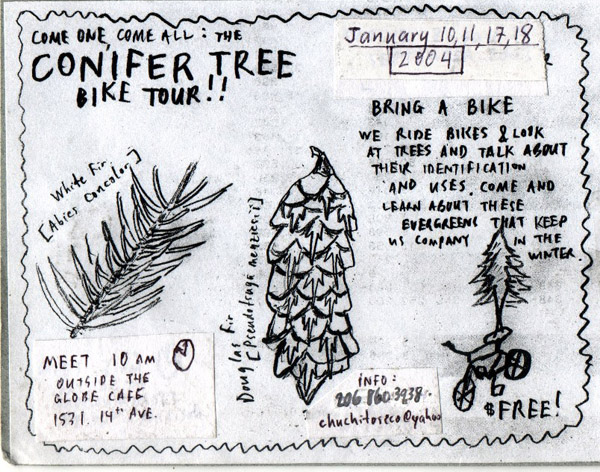 COME ONE, COME ALL: THE
CONIFER TREE
BIKE TOUR!!
January 10, 11, 17, 18
2004
BRING A BIKE
WE RIDE BIKES & LOOK
AT TREES AND TALK ABOUT
THEIR IDENTIFICATION
AND USES. COME AND
LEARN ABOUT THESE
EVERGREENS THAT KEEP
US COMPANY IN THE
WINTER.
White Fir
[Abies concolor]
Douglas Fir
[Pseudotsuga menziesii]
MEET 10 AM
OUTSIDE THE
GLOBE CAFE
1531 14th AVE.
INFO:
206.860.3938
chuchitoseco@yahoo
$FREE!